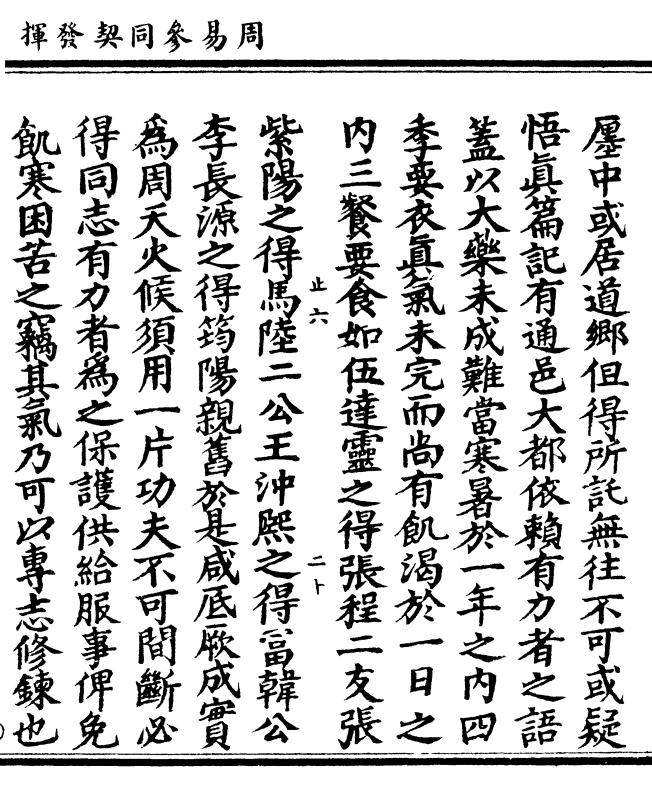 周易參同契發揮
廛中或居道鄉但得所託無往不可或疑
悟真篇記有通邑大都依賴有力者之語
蓋以大藥未成難當寒暑於一年之內四
季要衣真氣未完而尚有飢渴於一日之
內三餐要食如伍達靈之得張程二友張
止六
二卜
紫陽之得馬陸二公王沖熙之得富韓公
李長源之得筠陽親舊於是咸底厥成實
為周天火候須用一片功夫不可間斷必
得同志有力者為之保護供給服事俾免
飢寒困苦之竊其氣乃可以專志修鍊也